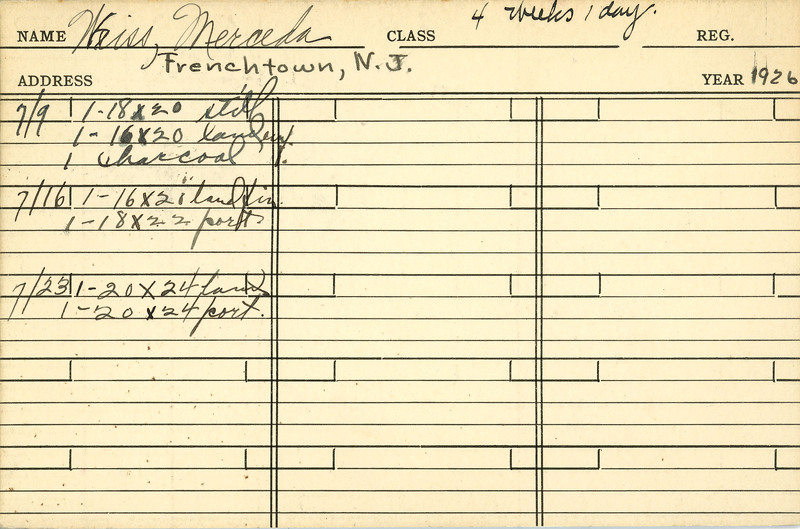 4 weeks 1 day.
NAME Weiss, Merceda CLASS REG.
Frenchtown, N.J.
ADDRESS YEAR 1926
7/9 1-18x20 still
1-16x20 landsc
1 charcoal
7/16 1-16x21 land
1-18x22 port
7/23 1-20x24 land
1-20x24 port.